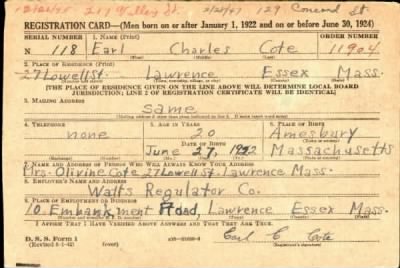 12/10/45 217 Valley St. 2/21/47 129 Concord St.
REGISTRATION CARD—(Men born on or after January 1, 1922 and on or before June 30, 1924)
SERIAL NUMBER 1. NAME (Print) ORDER NUMBER
N 118 Earl Charles Cote 11904
2. PLACE OF RESIDENCE (Print)
27 Lowell St. Lawrence Essex Mass.
[THE PLACE OF RESIDENCE GIVEN ON THE LINE ABOVE WILL DETERMINE LOCAL BOARD
JURISDICTION; LINE 2 OF REGISTRATION CERTIFICATE WILL BE IDENTICAL]
3. MAILING ADDRESS
same
4. TELEPHONE 5. AGE IN YEARS 6. PLACE OF BIRTH
none 20 Amesbury
DATE OF BIRTH
June 27, 1922 Massachusetts
7. NAME AND ADDRESS OF PERSON WHO WILL ALWAYS KNOW YOUR ADDRESS
Mrs. Olivine Cote 27 Lowell St. Lawrence Mass.
8. EMPLOYER'S NAME AND ADDRESS
Watts Regulator Co.
9. PLACE OF EMPLOYMENT OR BUSINESS
10 Embankment Road, Lawrence Essex Mass.
I AFFIRM THAT I HAVE VERIFIED ABOVE ANSWERS AND THAT THEY ARE TRUE.
D. S. S. Form 1
Earl C. Cote